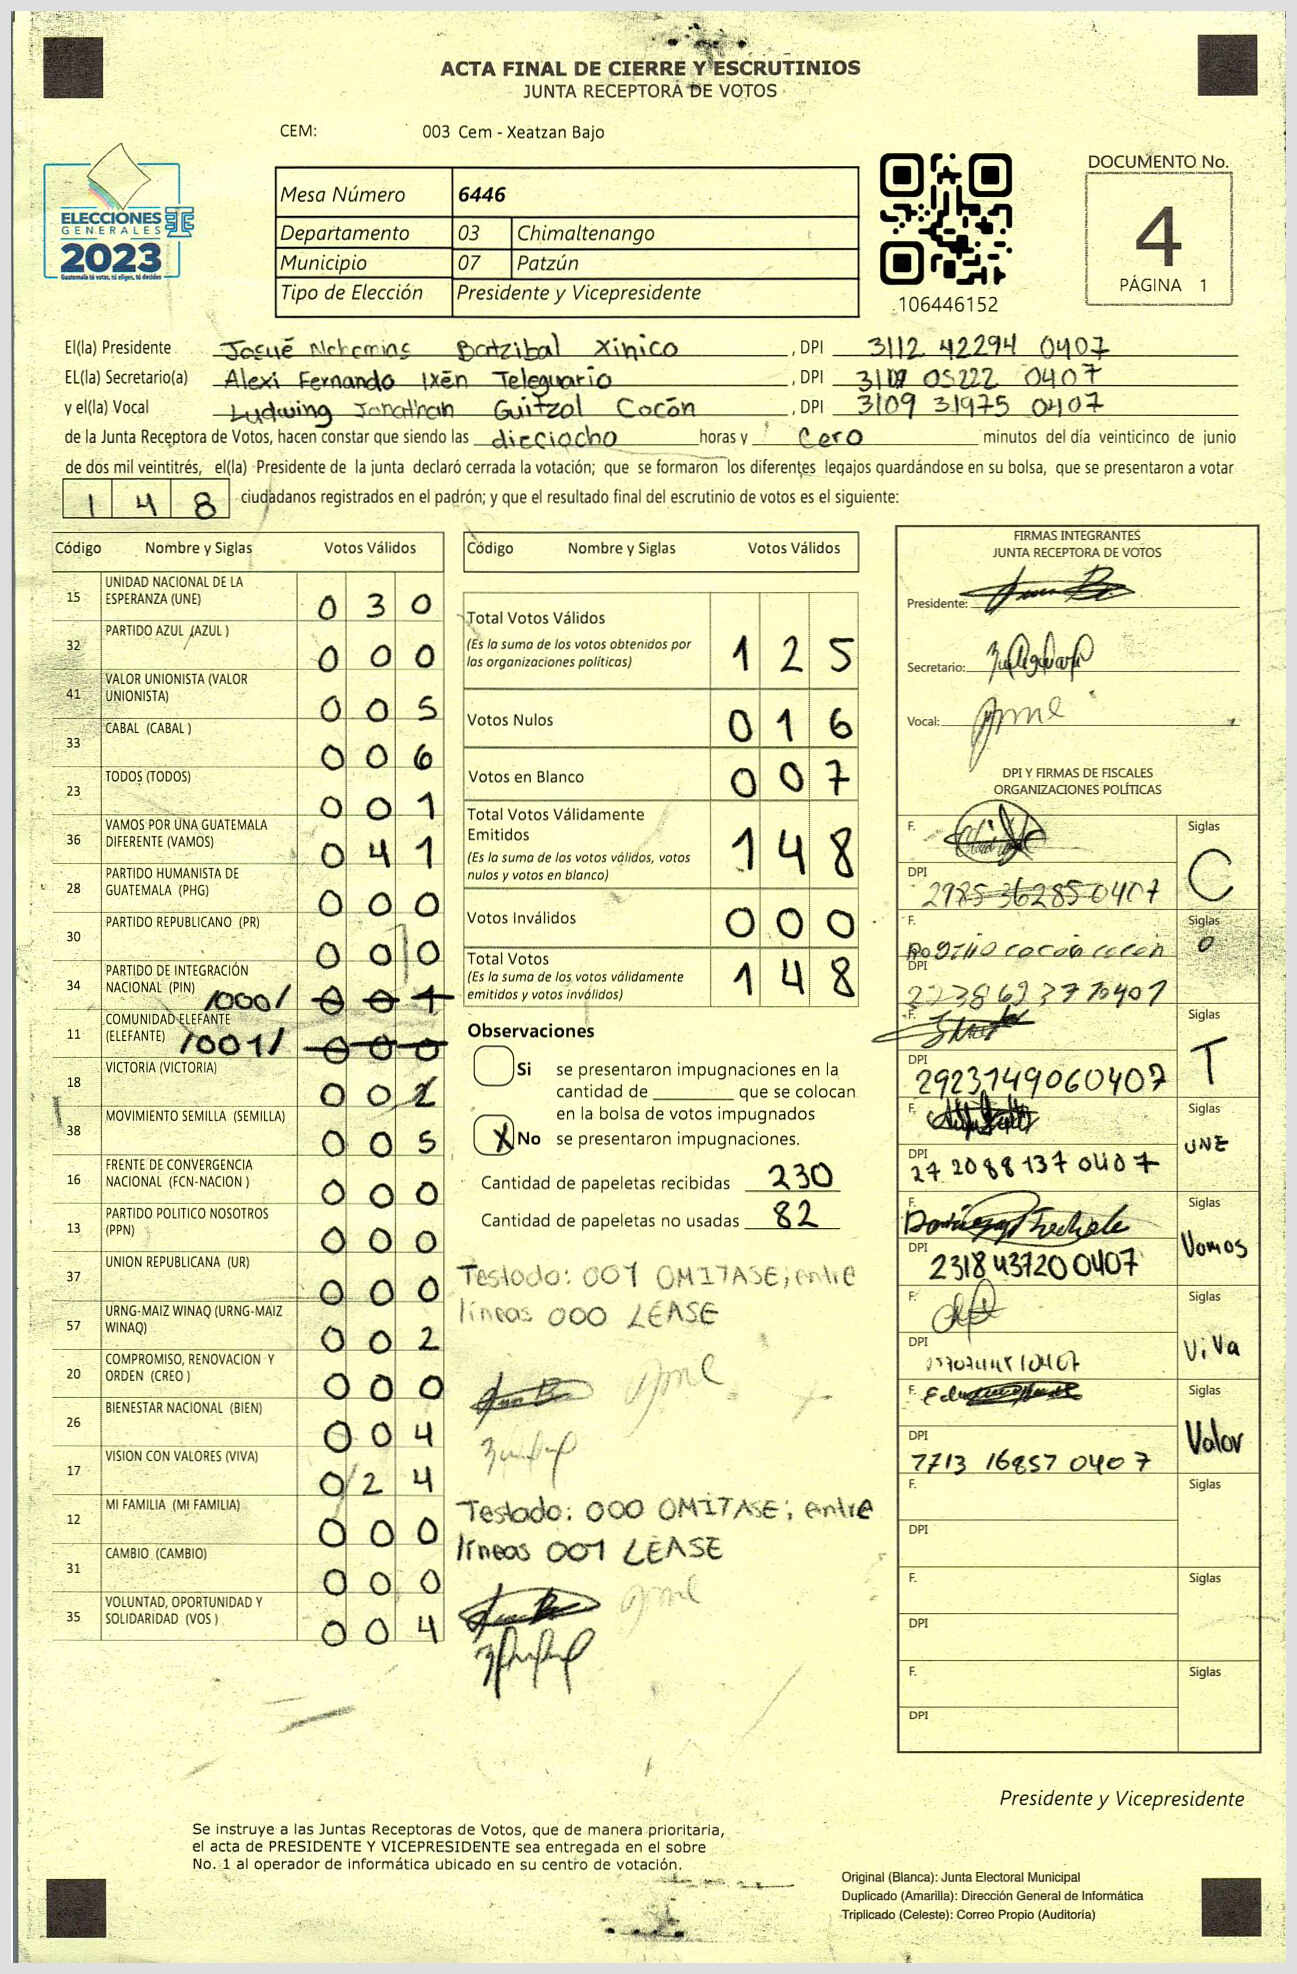 ACTA FINAL DE CIERRE Y ESCRUTINIOS
JUNTA RECEPTORA DE VOTOS
CEM: 003 Cem - Xeatzan Bajo
ELECCIONES
GENERALES
2023
Guatemala tú votas, tú eliges, tú decides
Mesa Número 6446
Departamento 03 Chimaltenango
Municipio 07 Patzún
Tipo de Elección Presidente y Vicepresidente
106446152
DOCUMENTO No.
4
PÁGINA 1
El(la) Presidente Josué Nehemias Batzibal Xinico, DPI 3112 42294 0407
EL(la) Secretario(a) Alexi Fernando Ixén Teleguario, DPI 05222 0407
y el(la) Vocal Ludwing Jonathan Guitzol Cocón, DPI 3109 31975 0407
de la Junta Receptora de Votos, hacen constar que siendo las dieciocho horas y cero minutos del día veinticinco de junio
de dos mil veintitrés, el(la) Presidente de la junta declaró cerrada la votación; que se formaron los diferentes legajos guardándose en su bolsa, que se presentaron a votar
148 ciudadanos registrados en el padrón; y que el resultado final del escrutinio de votos es el siguiente:
Código Nombre y Siglas Votos Válidos
15 UNIDAD NACIONAL DE LA ESPERANZA (UNE) 030
32 PARTIDO AZUL (AZUL ) 000
41 VALOR UNIONISTA (VALOR UNIONISTA) 005
33 CABAL (CABAL ) 006
23 TODOS (TODOS) 001
36 VAMOS POR UNA GUATEMALA DIFERENTE (VAMOS) 041
28 PARTIDO HUMANISTA DE GUATEMALA (PHG) 000
30 PARTIDO REPUBLICANO (PR) 000
34 PARTIDO DE INTEGRACIÓN NACIONAL (PIN) /000/ 001
11 COMUNIDAD ELEFANTE (ELEFANTE) /001/ 000
18 VICTORIA (VICTORIA) 002
38 MOVIMIENTO SEMILLA (SEMILLA) 005
16 FRENTE DE CONVERGENCIA NACIONAL (FCN-NACION ) 000
13 PARTIDO POLITICO NOSOTROS (PPN) 000
37 UNION REPUBLICANA (UR) 000
57 URNG-MAIZ WINAQ (URNG-MAIZ WINAQ) 002
20 COMPROMISO, RENOVACION Y ORDEN (CREO ) 000
26 BIENESTAR NACIONAL (BIEN) 004
17 VISION CON VALORES (VIVA) 024
12 MI FAMILIA (MI FAMILIA) 000
31 CAMBIO (CAMBIO) 000
35 VOLUNTAD, OPORTUNIDAD Y SOLIDARIDAD (VOS ) 004
Código Nombre y Siglas Votos Válidos
Total Votos Válidos 125
(Es la suma de los votos obtenidos por las organizaciones políticas)
Votos Nulos 016
Votos en Blanco 007
Total Votos Válidamente Emitidos 148
(Es la suma de los votos válidos, votos nulos y votos en blanco)
Votos Inválidos 000
Total Votos 148
(Es la suma de los votos válidamente emitidos y votos inválidos)
Observaciones
Si se presentaron impugnaciones en la
cantidad de ________ que se colocan
en la bolsa de votos impugnados
X No se presentaron impugnaciones.
Cantidad de papeletas recibidas 230
Cantidad de papeletas no usadas 82
Testado: 001 OMITASE; entre
líneas 000 LEASE
Testado: 000 OMITASE; entre
líneas 001 LEASE
FIRMAS INTEGRANTES
JUNTA RECEPTORA DE VOTOS
Presidente:
Secretario:
Vocal:
DPI Y FIRMAS DE FISCALES
ORGANIZACIONES POLÍTICAS
F. Siglas C
DPI 2985 36285 0407
F. Siglas O
DPI
F. Siglas T
DPI 2923149060407
F. Siglas UNE
DPI 27 2088 137 0407
F. Siglas Vamos
DPI 2318 43720 0407
F. Siglas ViVa
DPI
F. Siglas Valor
DPI 7713 16857 0407
F. Siglas
DPI
F. Siglas
DPI
F. Siglas
DPI
Presidente y Vicepresidente
Se instruye a las Juntas Receptoras de Votos, que de manera prioritaria,
el acta de PRESIDENTE Y VICEPRESIDENTE sea entregada en el sobre
No. 1 al operador de informática ubicado en su centro de votación.
Original (Blanca): Junta Electoral Municipal
Duplicado (Amarilla): Dirección General de Informática
Triplicado (Celeste): Correo Propio (Auditoría)